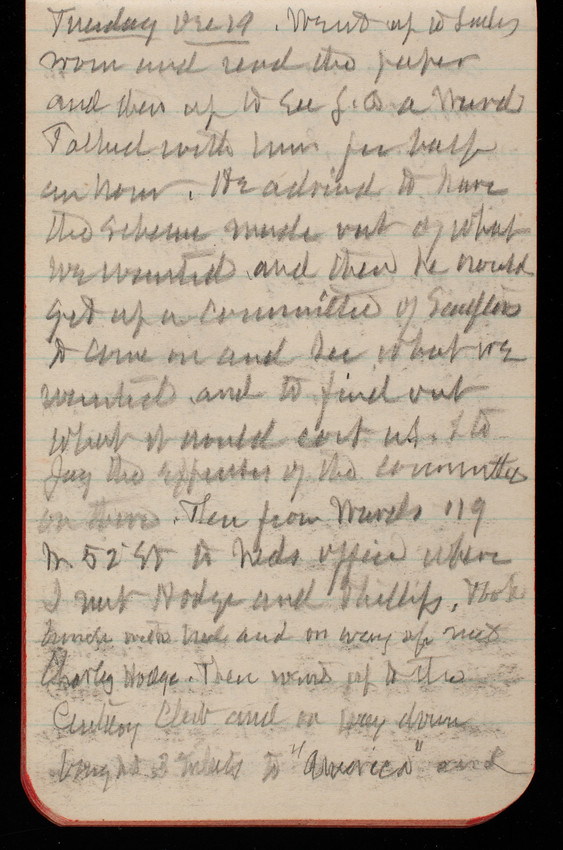 Tuesday Dec 19. Went up to Sales
room and read the paper
and then up to see J.Q.A. Ward
Talked with him for half
an hour. He advised to have
the scheme made out of what
we wanted and then he would
get up a committee of Sculptors
to come on and see what we
wanted and to find out
what it would cost us. & to
pay the expenses of the committee
on there. Then from Wards 119
W. 52 St to Neds office where
I met Hodge and Phillips. Took
lunch with Ned and on way up met
Charley Hodge. Then went up to the
Century Club and on way down
bought 3 tickets to "America" and